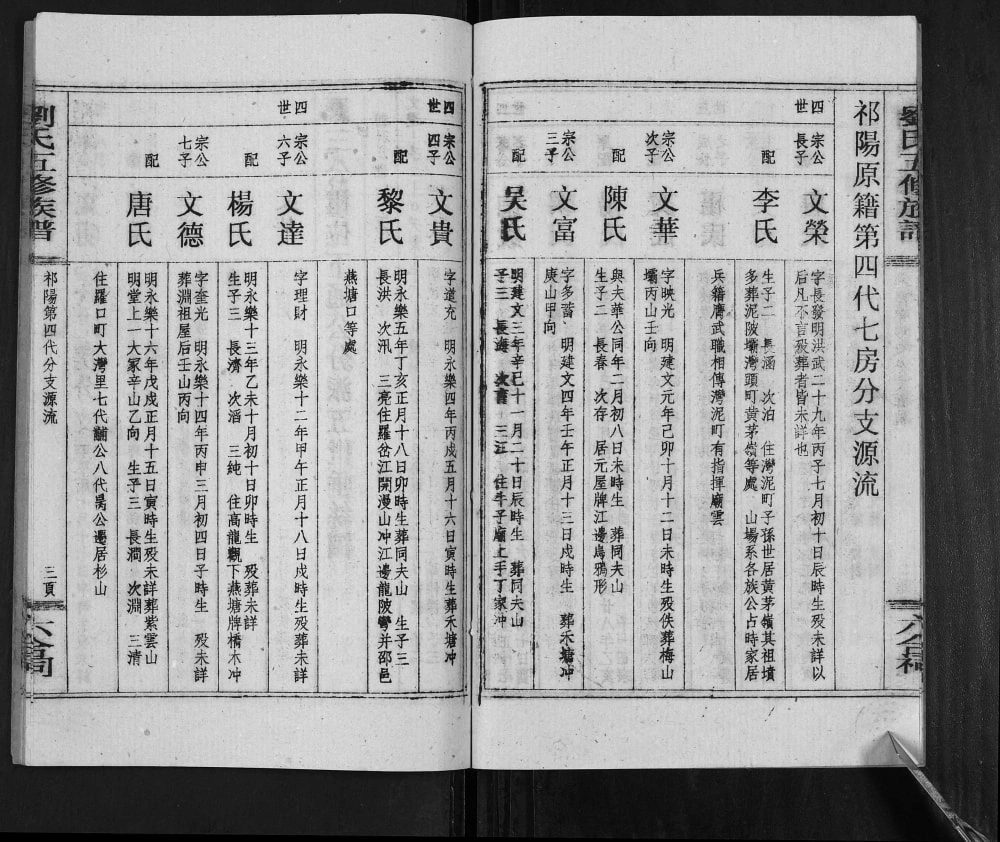 祁陽原籍第四代七房分支源流
四世
宗公長子
文榮
字長發明洪武二十九年丙子七月初十日辰時生歿未詳以
后凡不言歿葬者皆未詳也
配
李氏
生子二 長涵 次泊 住灣泥町子孫世居黄茅嶺其祖墳
多葬泥陂壩灣頭町黄茅嶺等處 山場系各族公占時家居
兵籍膺武職相傳灣泥町有指揮廟雲
宗公次子
文華
字映光 明建文元年己卯十月十二日未時生歿佚葬梅山
壩丙山壬向
配
陳氏
與夫華公同年二月初八日未時生 葬同夫山
生子二 長春 次存 居元屋牌江邊烏鴉形
宗公三子
文富
字多蓄 明建文四年壬午正月十三日戍時生 葬禾塘冲
庚山甲向
配
吴氏
明建文三年辛巳十一月二十日辰時生 葬同夫山
子三 長海 次 三江 住牛子廟上手丁家冲
四世
宗公四子
文貴
字道充 明永樂四年丙戍五月十六日寅時生葬禾塘冲
配
黎氏
明永樂五年丁亥正月十八日卯時生葬同夫山 生子三
長洪 次汛 三亮住羅岔江開漫山冲江邊龍陂彎并邵邑
燕塘口等處
四世
宗公六子
文達
字理財 明永樂十二年甲午正月十八日戍時生歿葬未詳
配
楊氏
明永樂十三年乙未十月初十日卯時生 歿葬未詳
生子三 長濟 次滔 三純 住高龍觀下燕塘牌橋木冲
宗公七子
文德
字奎光 明永樂十四年丙申三月初四日子時生 歿未詳
葬淵祖屋后壬山丙向
配
唐氏
明永樂十六年戍戍正月十五日寅時生歿未詳葬紫雲山
明堂上一大冢辛山乙向 生子三 長澗 次淵 三清
住羅口町大灣里七代公八代昺公遷居杉山
祁陽第四代分支源流
三頁
劉氏五修族譜